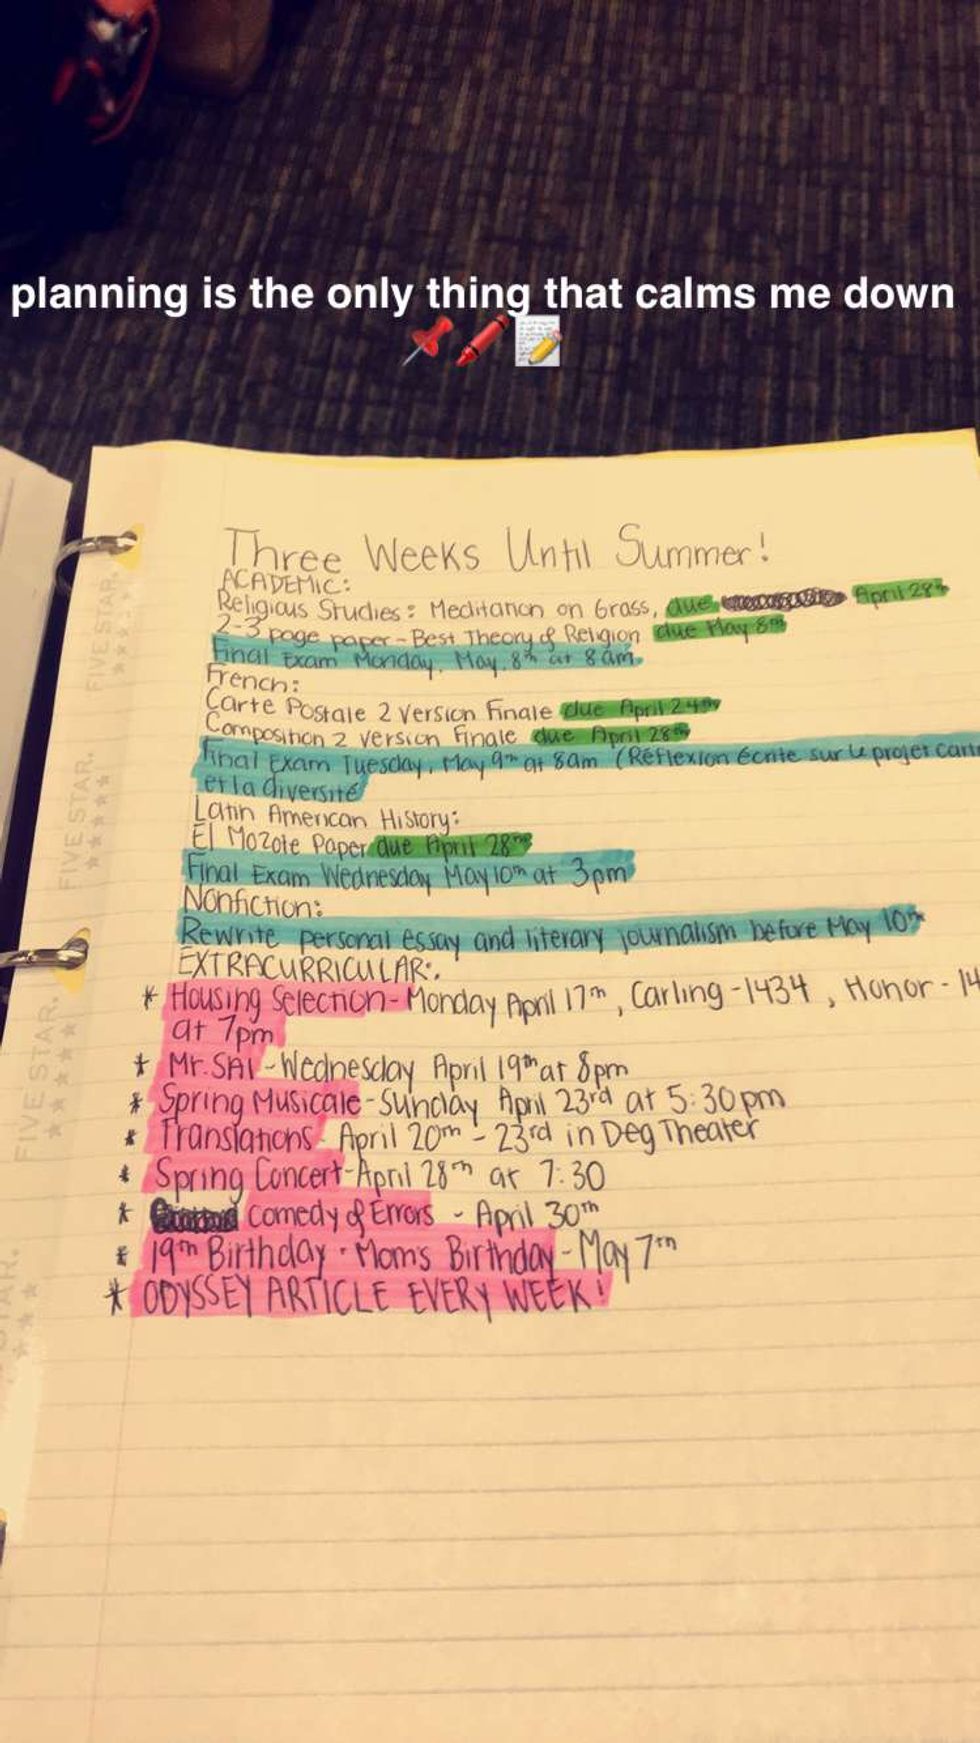 planning is the only thing that calms me down
Three Weeks Until Summer!
ACADEMIC:
Religious Studies: Meditation on Grass, due April 28th
2-3 page paper - Best Theory of Religion due May 8th
Final Exam Monday, May 8th at 8am
French:
Carte Postale 2 Version Finale due April 24th
Composition 2 Version Finale due April 28th
Final Exam Tuesday, May 9th at 8am (Réflexion écrite sur le projet cart
et la diversité
Latin American History:
El Mozote Paper due April 28th
Final Exam Wednesday May 10th at 3pm
Nonfiction:
Rewrite personal essay and literary journalism before May 10th
EXTRACURRICULAR:
* Housing Selection - Monday April 17th, Carling - 1434, Honor - 14
at 7pm
* Mr. SAI - Wednesday April 19th at 8pm
* Spring Musicale - Sunday April 23rd at 5:30pm
* Translations - April 20th - 23rd in Deg Theater
* Spring Concert - April 28th at 7:30
* Comedy of Errors - April 30th
* 19th Birthday · Moms Birthday - May 7th
* ODYSSEY ARTICLE EVERY WEEK!
FIVE STAR.
FIVE STAR.
FIVE STAR.